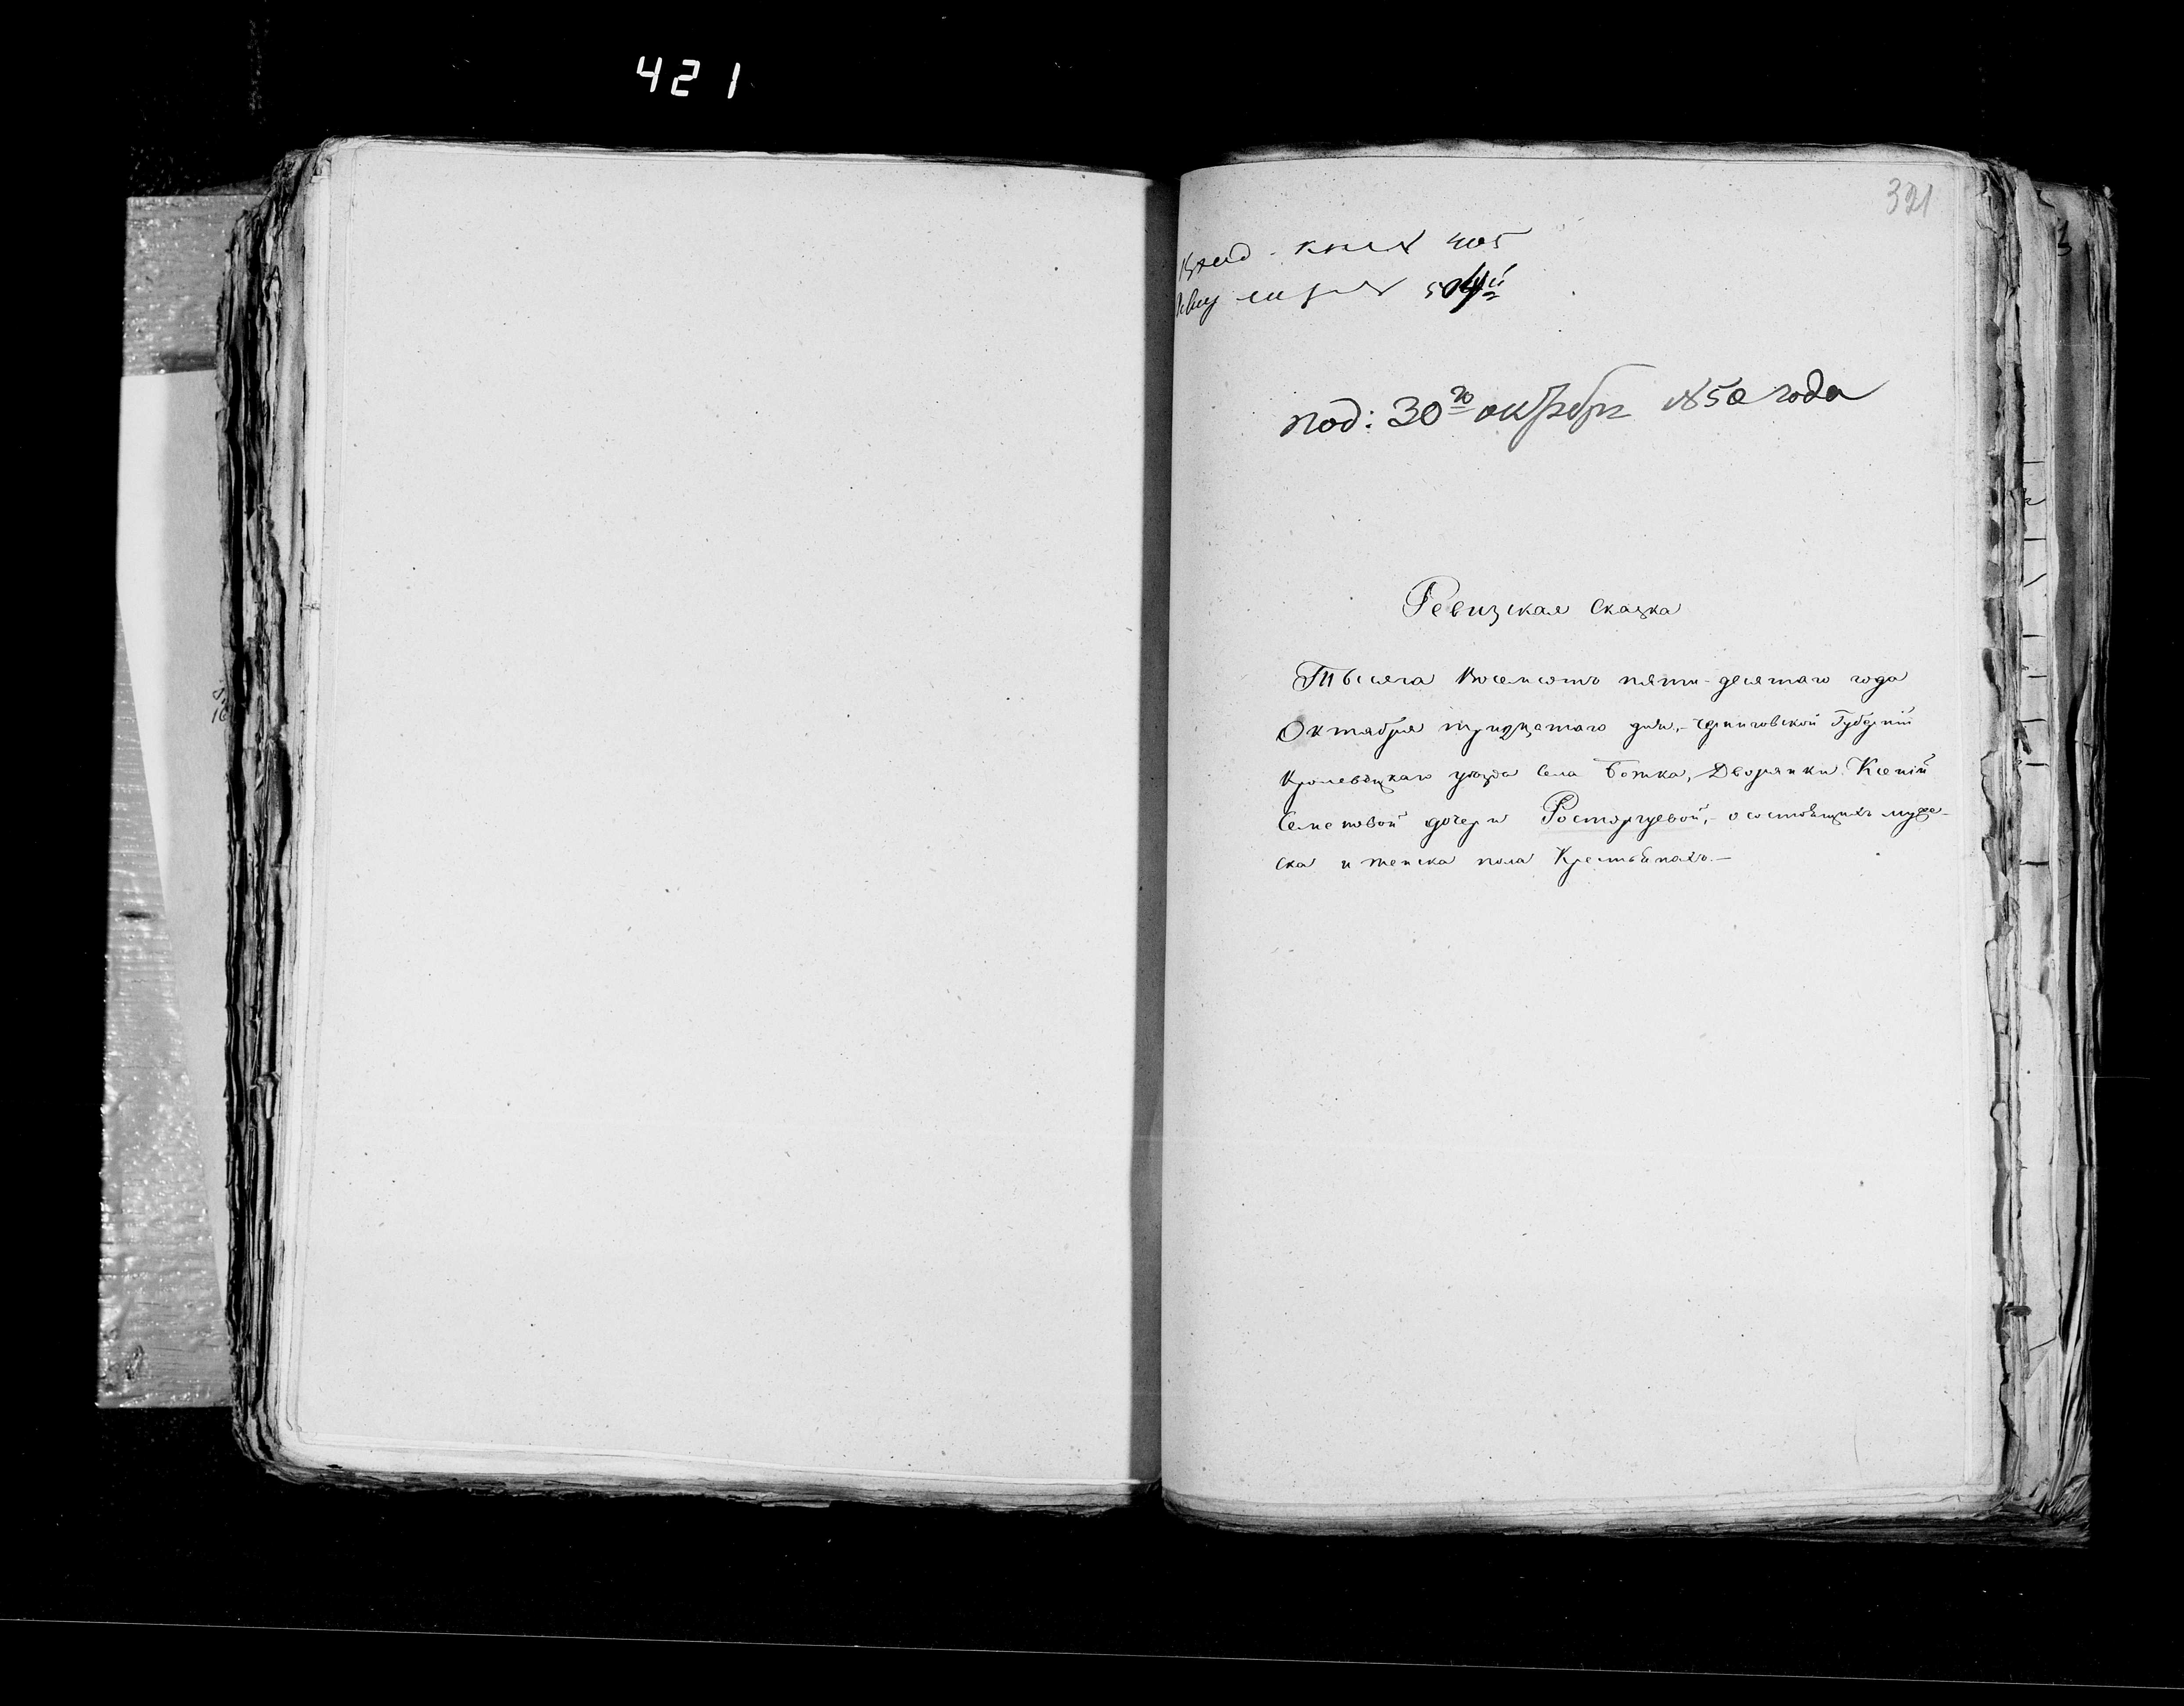 421
321
405
под: 30го октября 1850 года
Ревизская Сказка
Тысяча Восемсотъ пяти-десятаго года
Октября тридцатаго дня,- Черниговской Губерніи
Кролевецкаго уезда Села Ботка, Дворянки Ксеніи
Семеновой дочери Расторгуевой,- о состоящихъ муже-
ска и женска пола Крестьянахъ.-